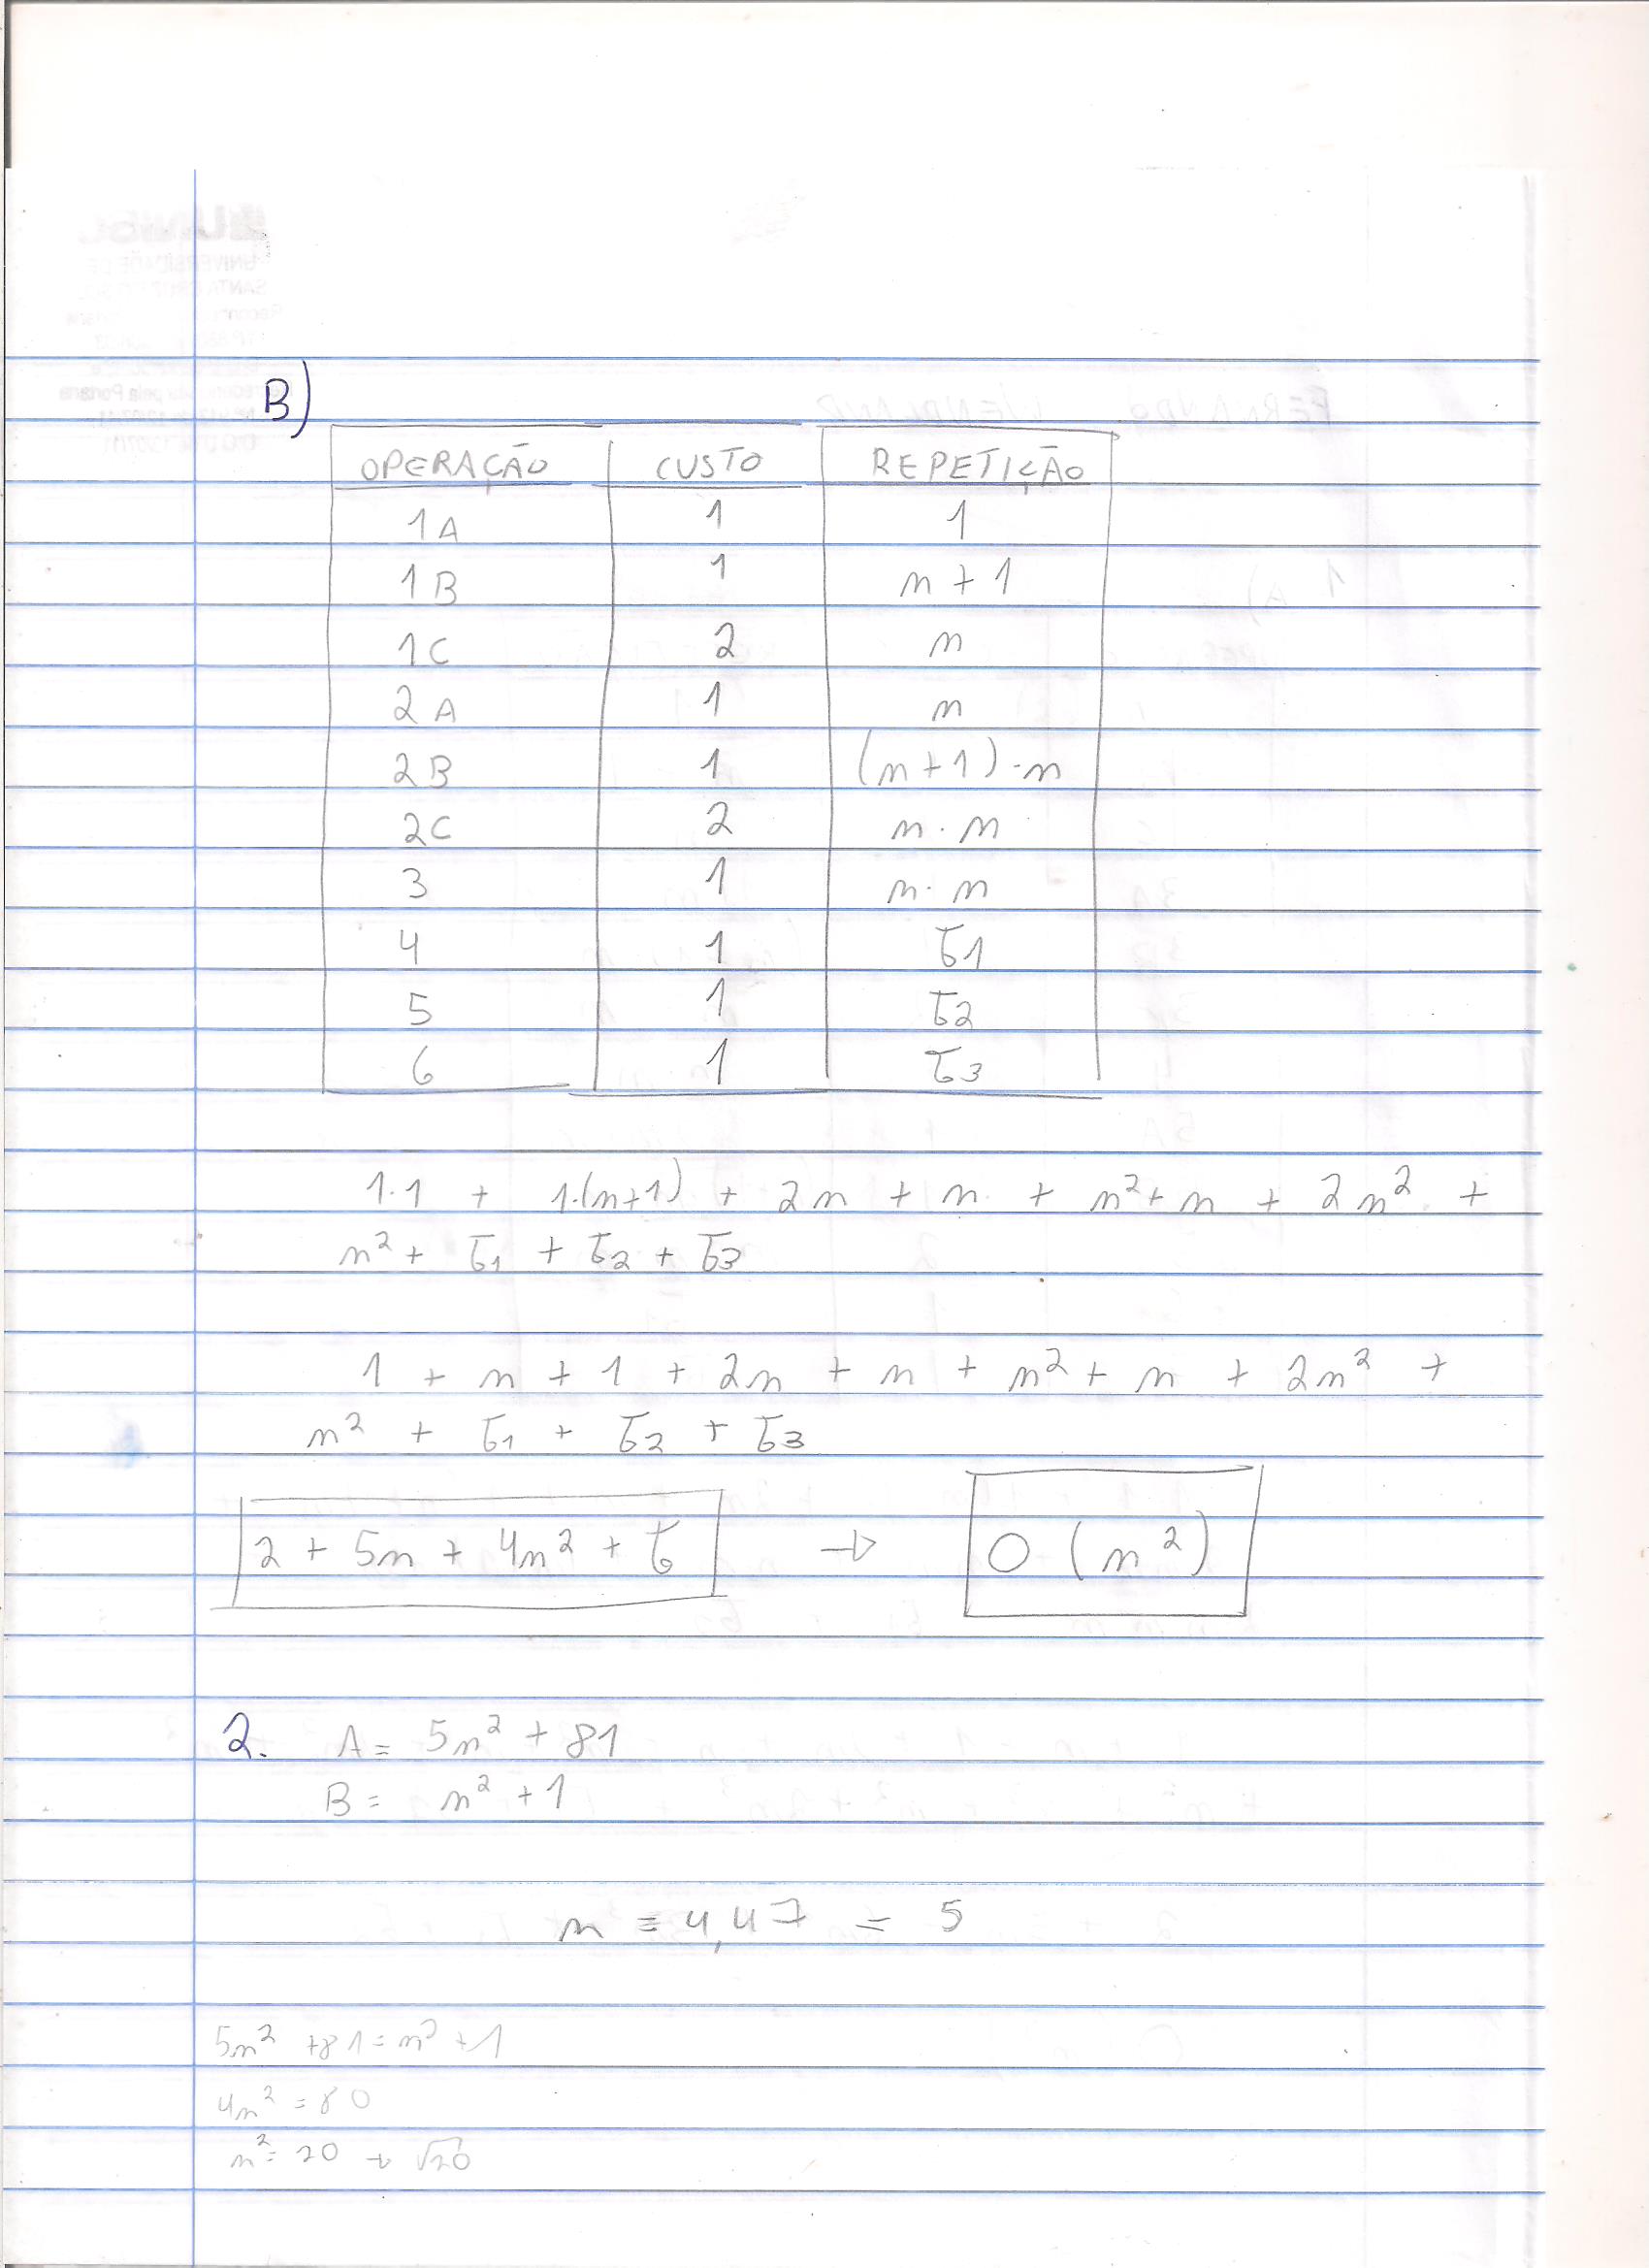 B)
OPERAÇÃO CUSTO REPETIÇÃO
1A 1 1
1B 1 n + 1
1C 2 n
2A 1 n
2B 1 (n+1)·n
2C 2 n·n
3 1 n·n
4 1 τ1
5 1 τ2
6 1 τ3
1·1 + 1·(n+1) + 2n + n + n² + n + 2n² +
n² + τ1 + τ2 + τ3
1 + n + 1 + 2n + n + n² + n + 2n² +
n² + τ1 + τ2 + τ3
2 + 5n + 4n² + τ → O (n²)
2. A = 5n² + 81
B = n² + 1
n = 4,47 = 5
5n² + 81 = n² + 1
4n² = 80
n² = 20 → √20